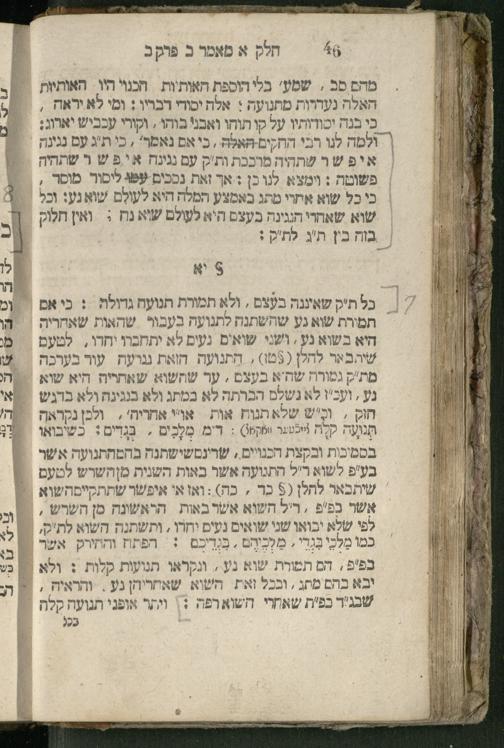 46
חלק א מאמר ב פרק ב
מהם סב, שמע׳ בלי הוספת האותיות הכנוי היו האותיות
האלה נעדרות מתנועה; אלה יסודי דבריו: ומי לא יראה,
כי בנה יסודותיו על קו תוהו ואבני בוהו, וקורי עכביש יארוג:
ולמה לנו רבוי החקים האלה, כי אם נאמר, כי ת״ג עם נגינה
איפשר שתהיה מרכבת ות״ק עם נגינה איפשר שתהיה
פשוטה: ונמצא לנו כן: אך זאת נסכים עמו ליסוד מוסד,
כי כל שוא אחרי מתג באמצע המלה היא לעולם שוא נע: וכל
שוא שאחרי הנגינה בעצם היא לעולם שוא נח; ואין חלוק
בזה בין ת״ג לת״ק:
§ יא
7
כל ת״ק שאיננה בעצם, ולא תמורת תנועה גדולה: כי אם
תמורת שוא נע שהשתנה לתנועה בעבור שהאות שאחריה
היא בשוא נע, ושני שואים נעים לא יתחברו יחדו, לטעם
שיתבאר להלן (§טו), התנועה הזאת נגרעה עוד בערכה
מת״ק גמורה שהיא בעצם, עד שהשוא שאחריה היא שוא
נע, ועכ״ז לא נשלם הברתה לא במתג ולא בנגינה ולא בדגש
חזק, וכ״ש שלא תנוח אות אוי״ אחריה, ולכן נקראה
תְּנוּעָה קַלָּה: ד״מ מַלְכֵים, בְּגָדִים: כשיבואו
בסמיכות ובקצת הכנויים, שרינם שישתנה בהם התנועה אשר
בע״פ לשוא ר״ל התנועה אשר באות השנית מן השרש לטעם
שיתבאר להלן (§ כד, כה): ואז אי איפשר שתתקיים השוא
אשר בפ״פ, ר״ל השוא אשר באות הראשונה מן השרש,
לפי שלא יבואו שני שואים נעים יחדו, ותשתנה השוא לת״ק,
כמו מַלְכֵי בִּגְדֵי, מַלְכֵיהֶם, בִּגְדֵיכֶם: הפתח והחירק אשר
בפ״פ, הם תמורת שוא נע, ונקראו תנועות קלות: ולא
יבא בהם מתג, ובכל זאת השוא שאחריהן נע. והראיה,
שבג״ד כפ״ת שאחרי השוא רפה: ויתר אופני תנועה קלה
בכל